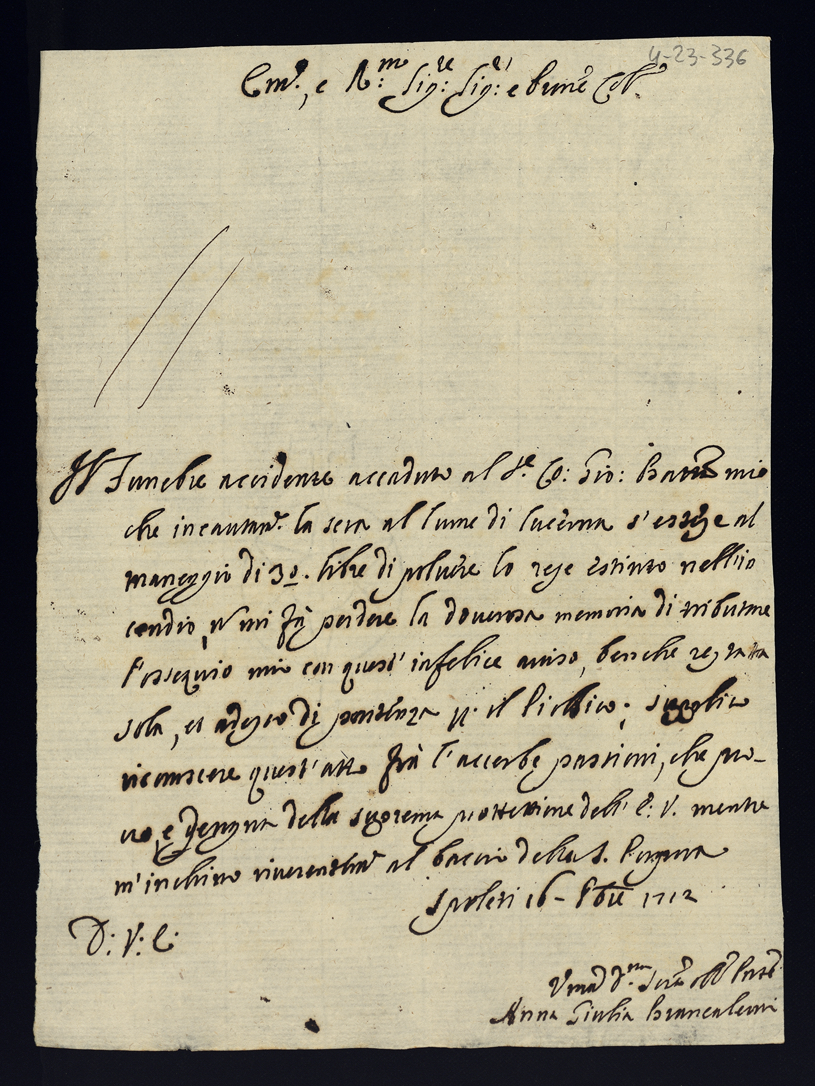 4-23-336
Em:, e R:m Sig:re Sig:r e
Il Funebre accidente accaduto al S.e Co: Gio: Batta mio
che incautam.te la sera al lume di lucerna s'esege al
maneggio di 30. libre di polvere lo rese estinto nell'in
cendio, mi fà perdere la doverosa memoria di tributare
l'ossequio mio con quest' infelice aviso, benche restata
sola, et di partenza p. il ; supplico
riconoscere quest'atto frà l'accerbe passioni, che pro-
vo, e degna della suprema prottettione dell' E: V. mentre
m'inchino riverentem.te al bacio della S. Porpora
Spoleti 16 - 1712
D: V: E:
Anna Giulia Brancaleoni